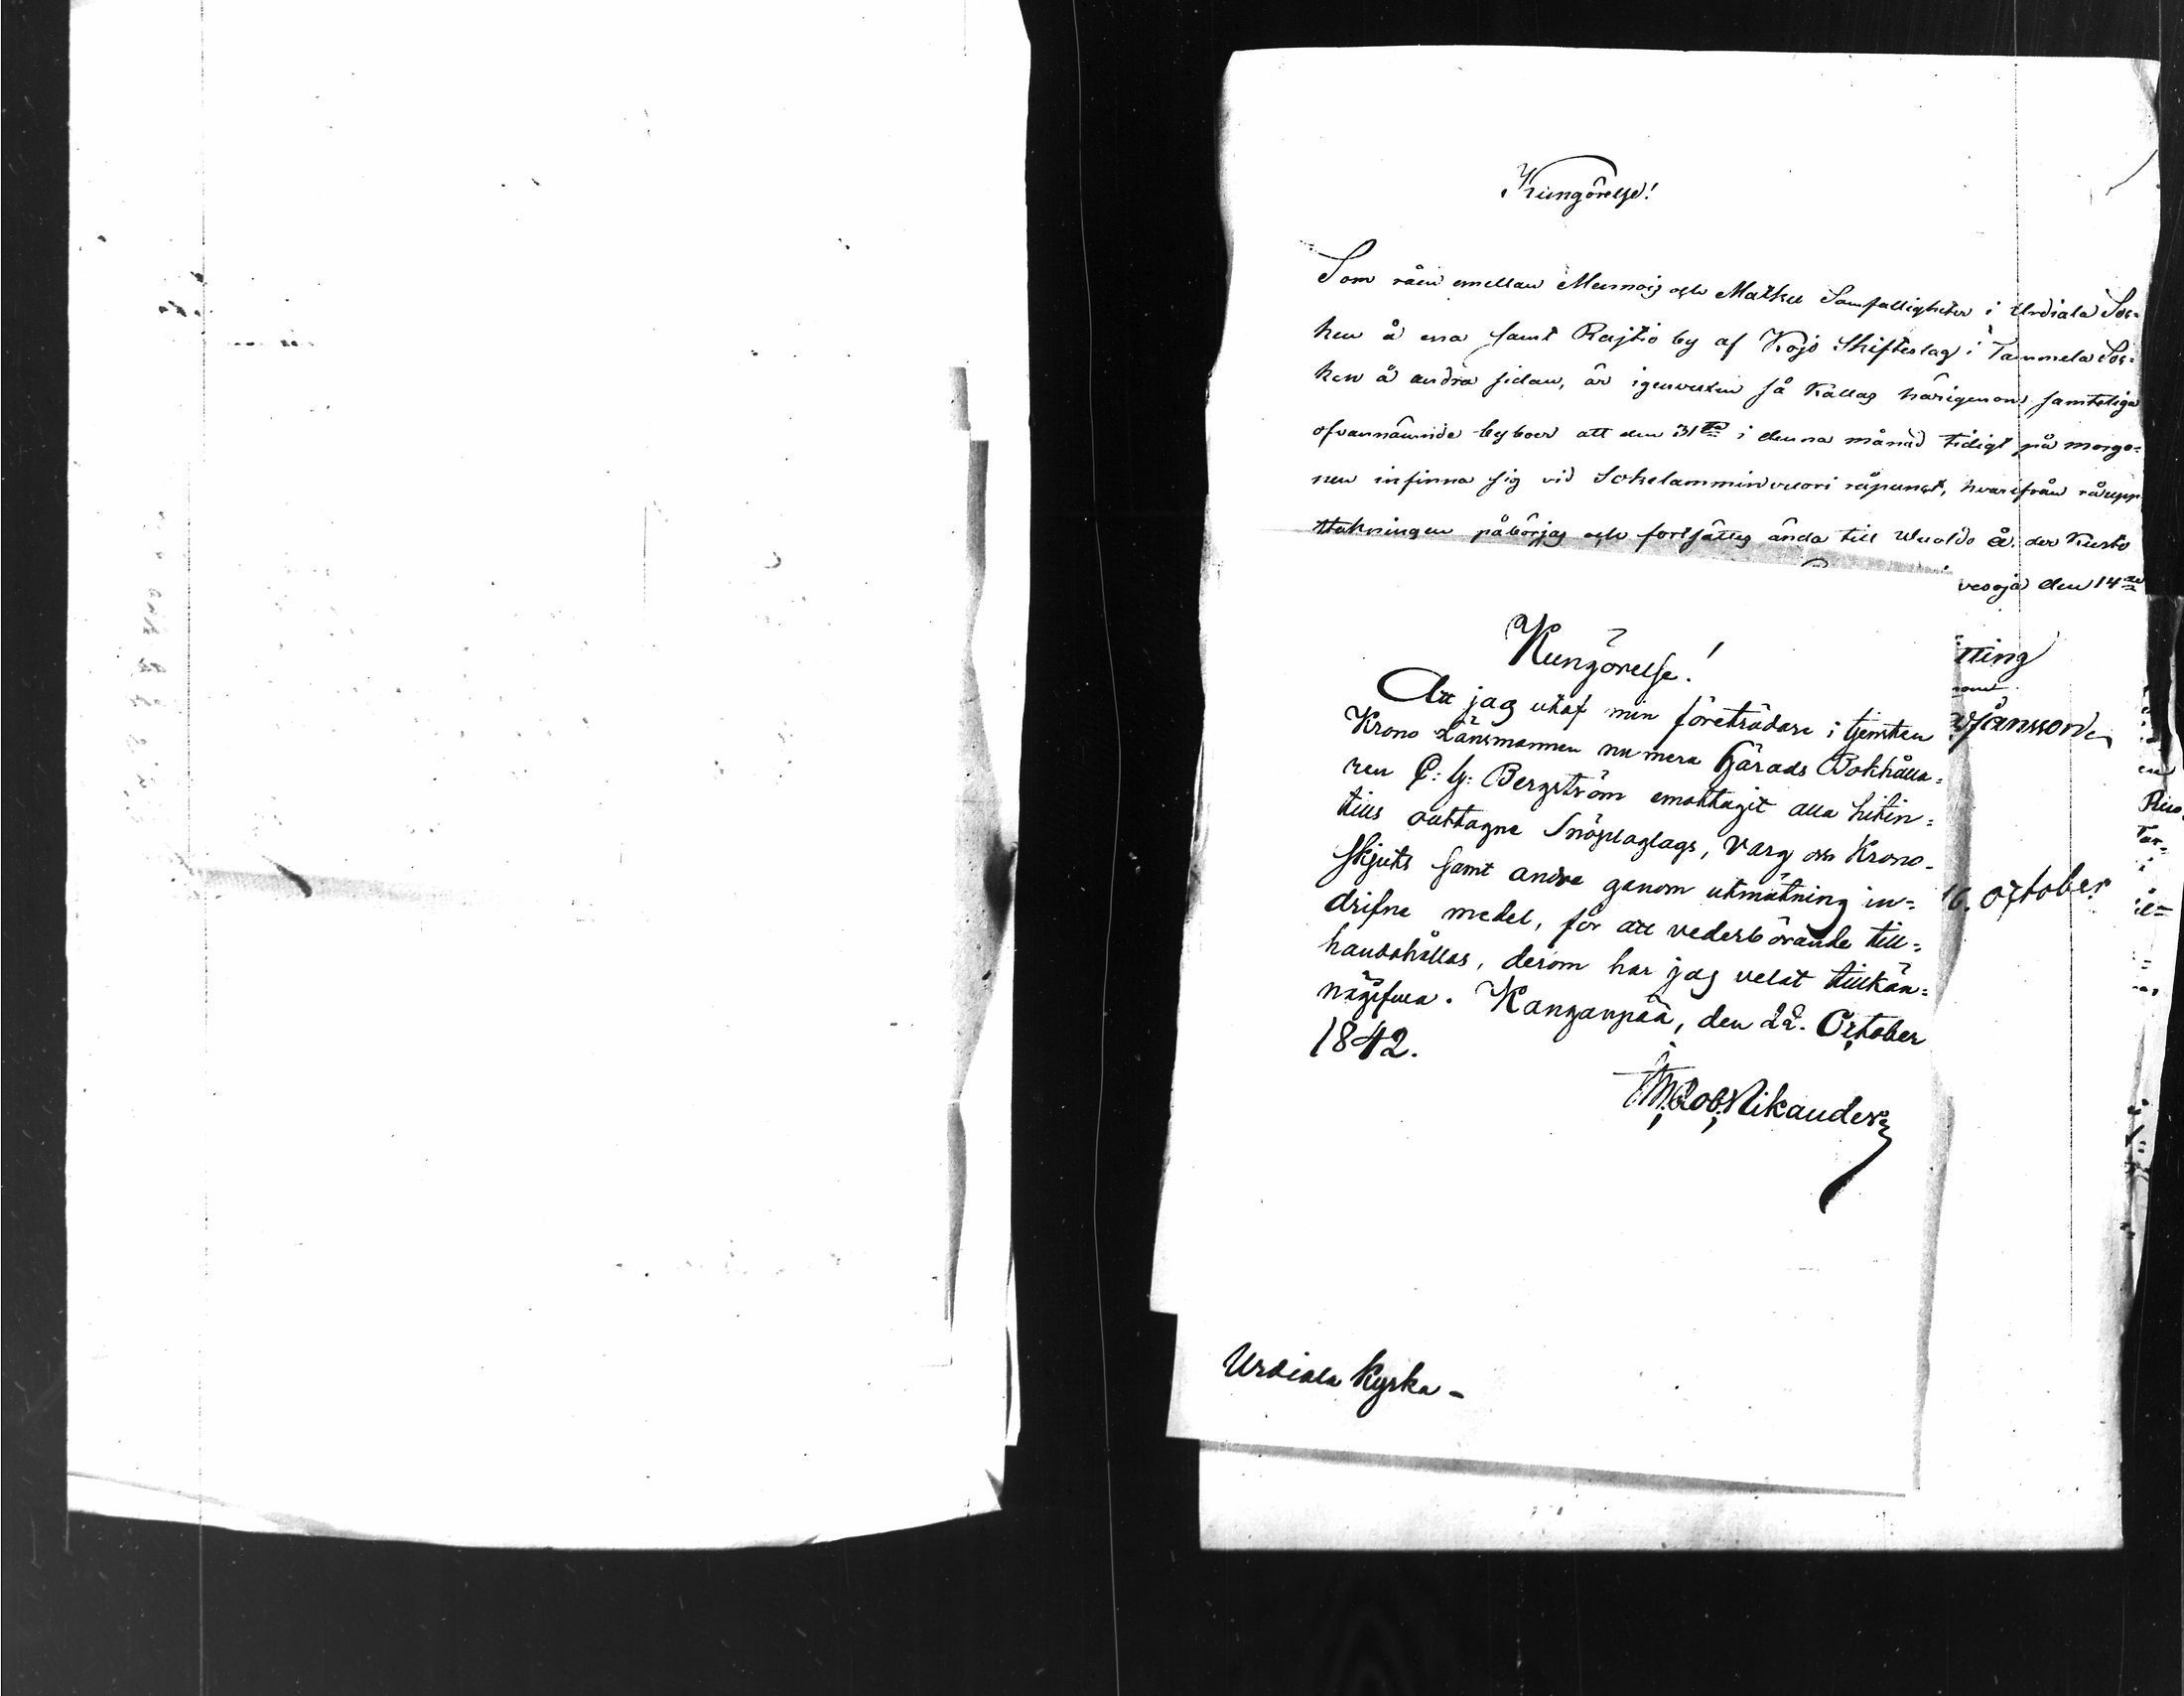 Kungörelse!
Som råen emellan Menois och Matku Samfälligheter i Urdiala Soc-
ken å ena samt Rajtio by af Kojo Skifteslag i Tammela Soc-
ken å andra sidan, är igenvuxen så kallas härigenom samteliga
ofvannämnde byboer att den 31sta i denna månad tidigt på morgo-
nen infinna sig vid Sokelamminvuori råpunct, hvarifrån råupp
ttakningen påbörjas och fortsättes ända till å. der
den 14de
tting
16. October
Kungörelse!
Att jag utaf min företrädare i tjensten
Krono Länsmannen nu mera Härads Bokhålla-
ren C: G: Bergström emottagit alla hitin-
tills outtagne Snöploglags, Varg och Krono-
skjuts samt andre genom utmätning in-
drifne medel, för att vederbörande till-
handahållas, derom har jag velat tillkän-
nagifva. Kanganpää, den 22. October
1842.
Rob. Nikander
Urdiala Kyrka-